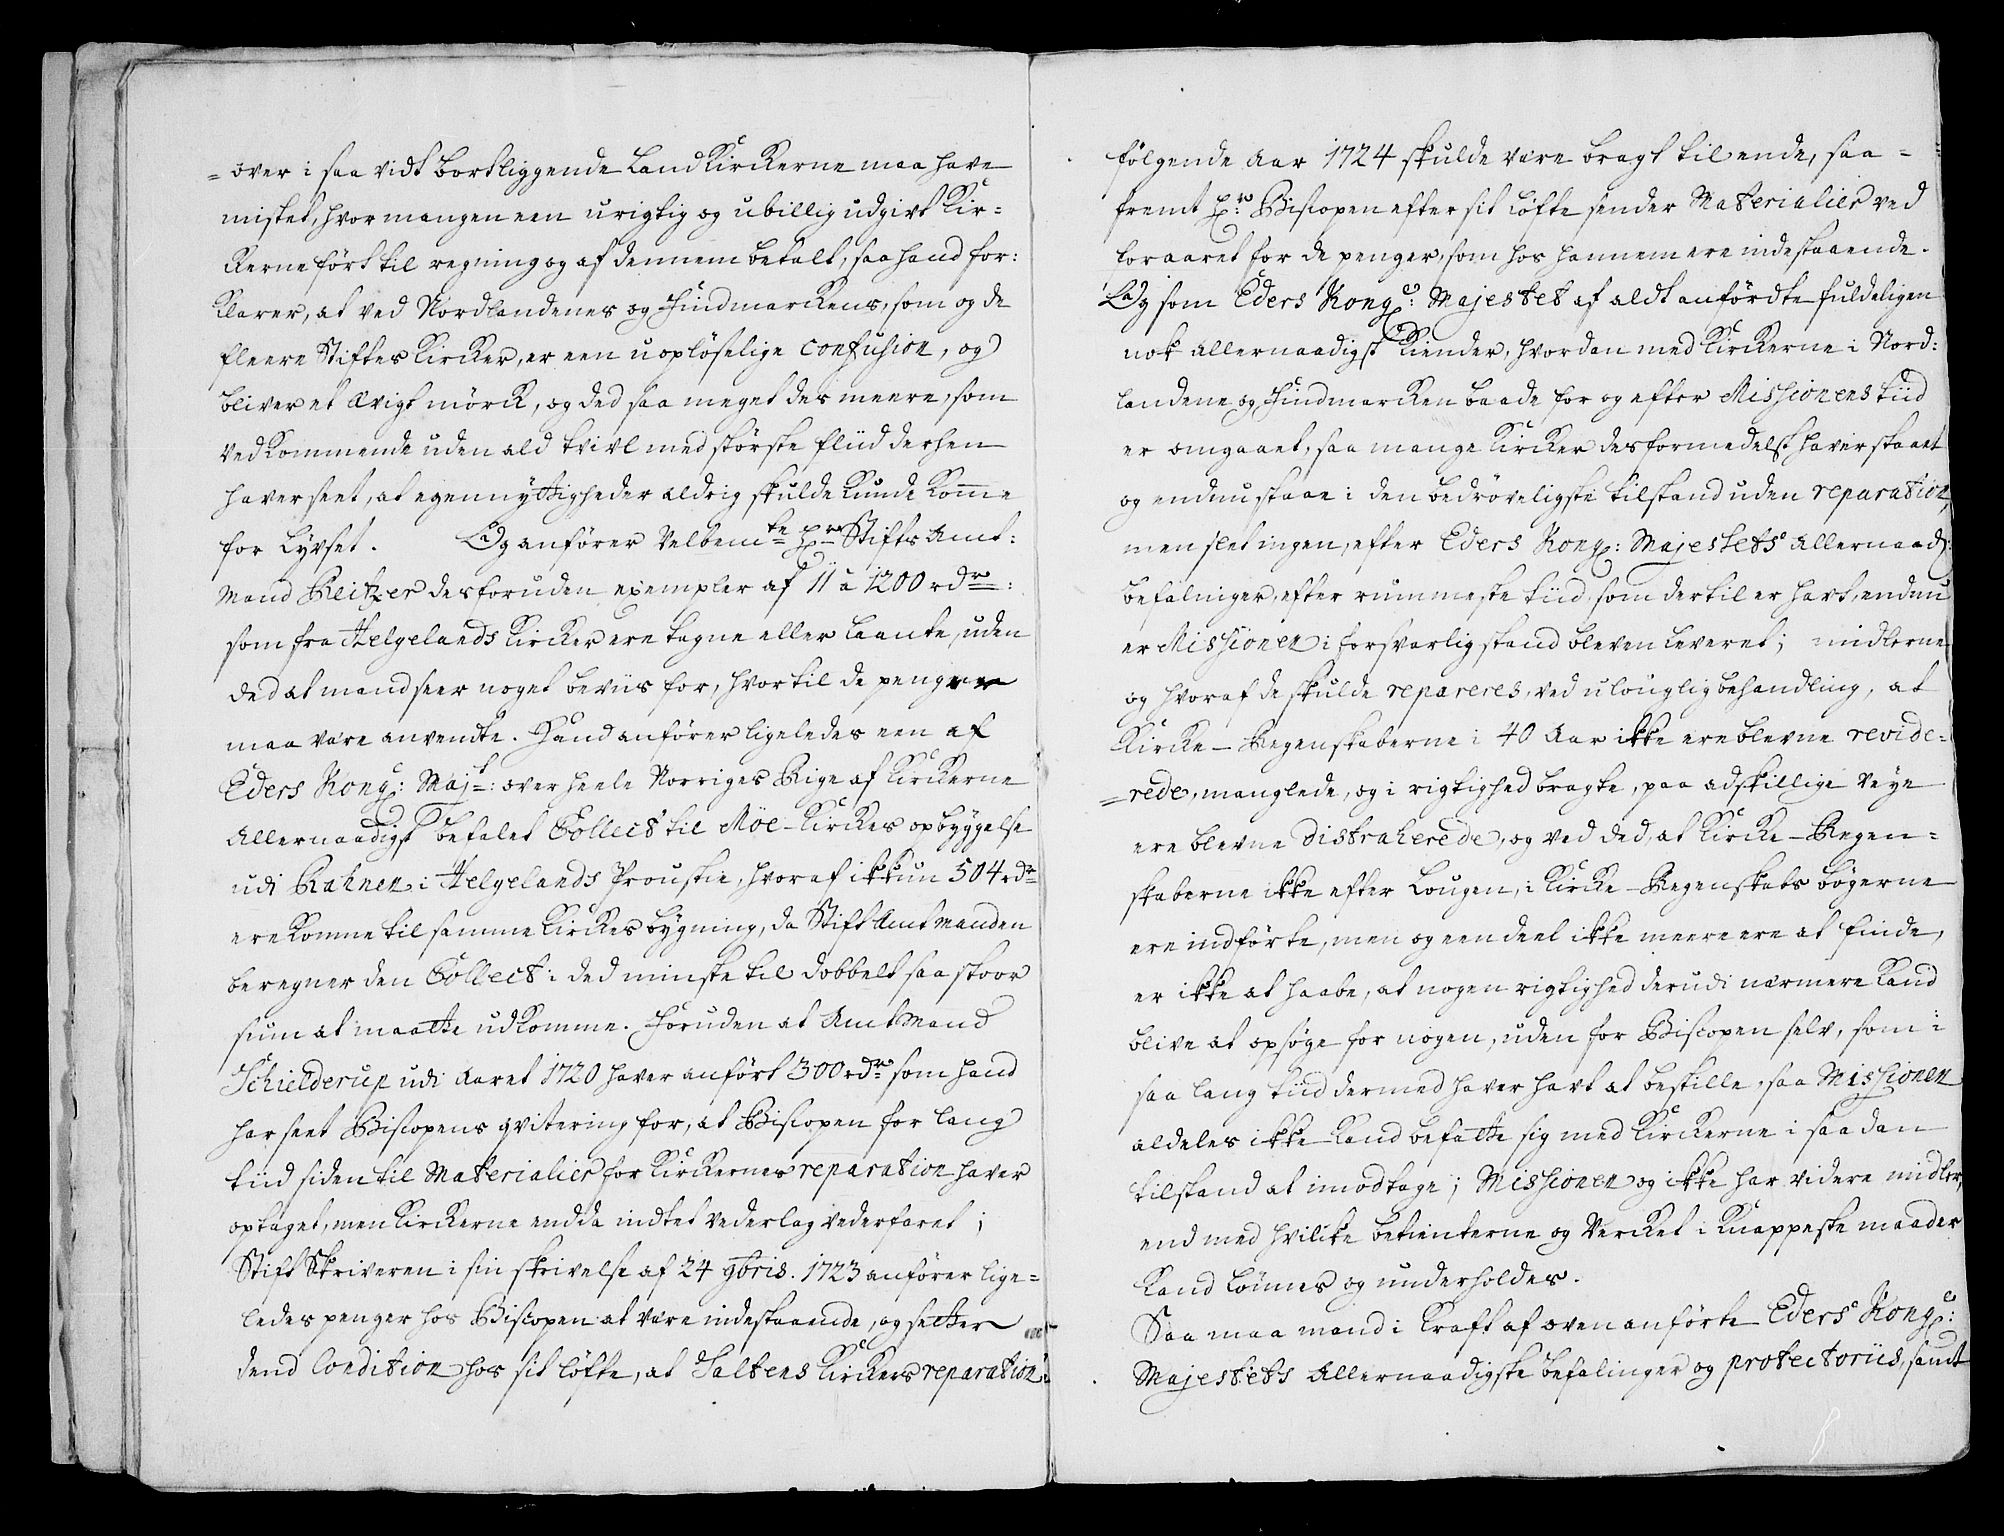 = over i saa vidt bortliggende Land Kirckerne maa have
mistet, hvor mangen een urigtig og ubillig udgivt Kir=
kerne fört til regning og af dennem betalt, saa hand for:
klarer, at ved Nordlandenes og Findmarckens, som og de
fleere Stiftes Kircker, er een uoplöselige confusion, og
bliver et Ævigt mörck, og ded saa meget des meere, som
vedkommende uden ald tvivl med störste fliid derhen
haver seet, at egennyttigheder aldrig skulde kunde kom̄e
for Lyyset. Og anförer Velbemte Hr Stifts Amt:
Mand Kreitzer desforuden exempler af 11 a 1200 rdr:
som fra Helgelands Kircker ere tagne eller laante, uden
ded at mand seer noget beviis for, hvortil de penger
maa være anvendte. Hand anförer ligeledes een af
Eders Kongl: Majt: over heele Norriges Rige af Kirckerne
Allernaadigst befalet Collect til Moe-Kirckes opbyggelse
udi Rahnen i Helgelands Proustie, hvoraf ikkun 504 rdr
ere komne til samme Kirckes bygning, da Stift Amtmanden
beregner den Collect i ded minste til dobbelt saa stoor
sum at maatte udkomme. Foruden at Amtmand
Schielderup udi Aaret 1720 haver anfört 300 rdr som hand
har seet Biscopens qvitering for, at Biscopen for lang
tiid siden til Materialier for Kirckernes reparation haver
optaget, men Kirckerne endda indtet vederlag vederfaret;
Stift Skriveren i sin skrivelse af 24 9bris. 1723 anförer lige=
ledes penger hos Biscopen at være indestaaende, og setter
dend Condition hos sit löfte, at Saltens Kirckers reparation
följgende Aar 1724 skulde være bragt til ende, saa=
fremt Hr Biscopen efter sit Löfte sender Materialier ved
foraaret for de penger, som hos hannem ere indestaaende.
Og som Eders Kongl: Majestet af aldt anfördte fuldeligen
nok allernaadigst kiender, hvordan med Kirckerne i Nord:
landene og Findmarcken baade for og efter Missionens tiid
er omgaaet, saa mange Kircker desformedelst haver staaet
og endnu staae i den bedröveligste tilstand uden reparation,
men slet ingen, efter Eders Kongl: Majestets Allernaad:
befalinger, efter rummeste tiid, som dertil er havt, endnu
er Missionen i forsvarlig stand bleven leveret; midlerne
og hvoraf de skulde repareres, ved ulouglig behandling, at
Kircke-Regenskaberne i 40 Aar ikke ere blevne revide=
=rede, manglede, og i rigtighed bragte, paa adskillige veye
ere blevne distraherede, og ved ded, at Kircke-Regen=
skaberne ikke efter Lougen, i Kircke-Regenskabs bögerne
ere indförte, men og een deel ikke meere ere at finde,
er ikke at haabe, at nogen rigtighed derudi nærmere kand
blive at opsöge for nogen, uden for Biscopen selv, som i
saa lang tiid dermed haver havt at bestille, saa Missionen
aldeles ikke kand befatte sig med Kirckerne i saadan
tilstand at imodtage; Missionen og ikke har videre midler,
end med hvilke betienterne og Vercket i knappeste maader
kand lönnes og underholdes.
Saa maa mand i kraft af ovenanförte Eders Kongl:
Majestets Allernaadigste befalinger og protectoriis, samt